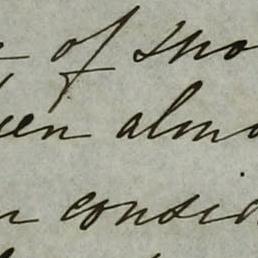 of sno
een almo
n consid